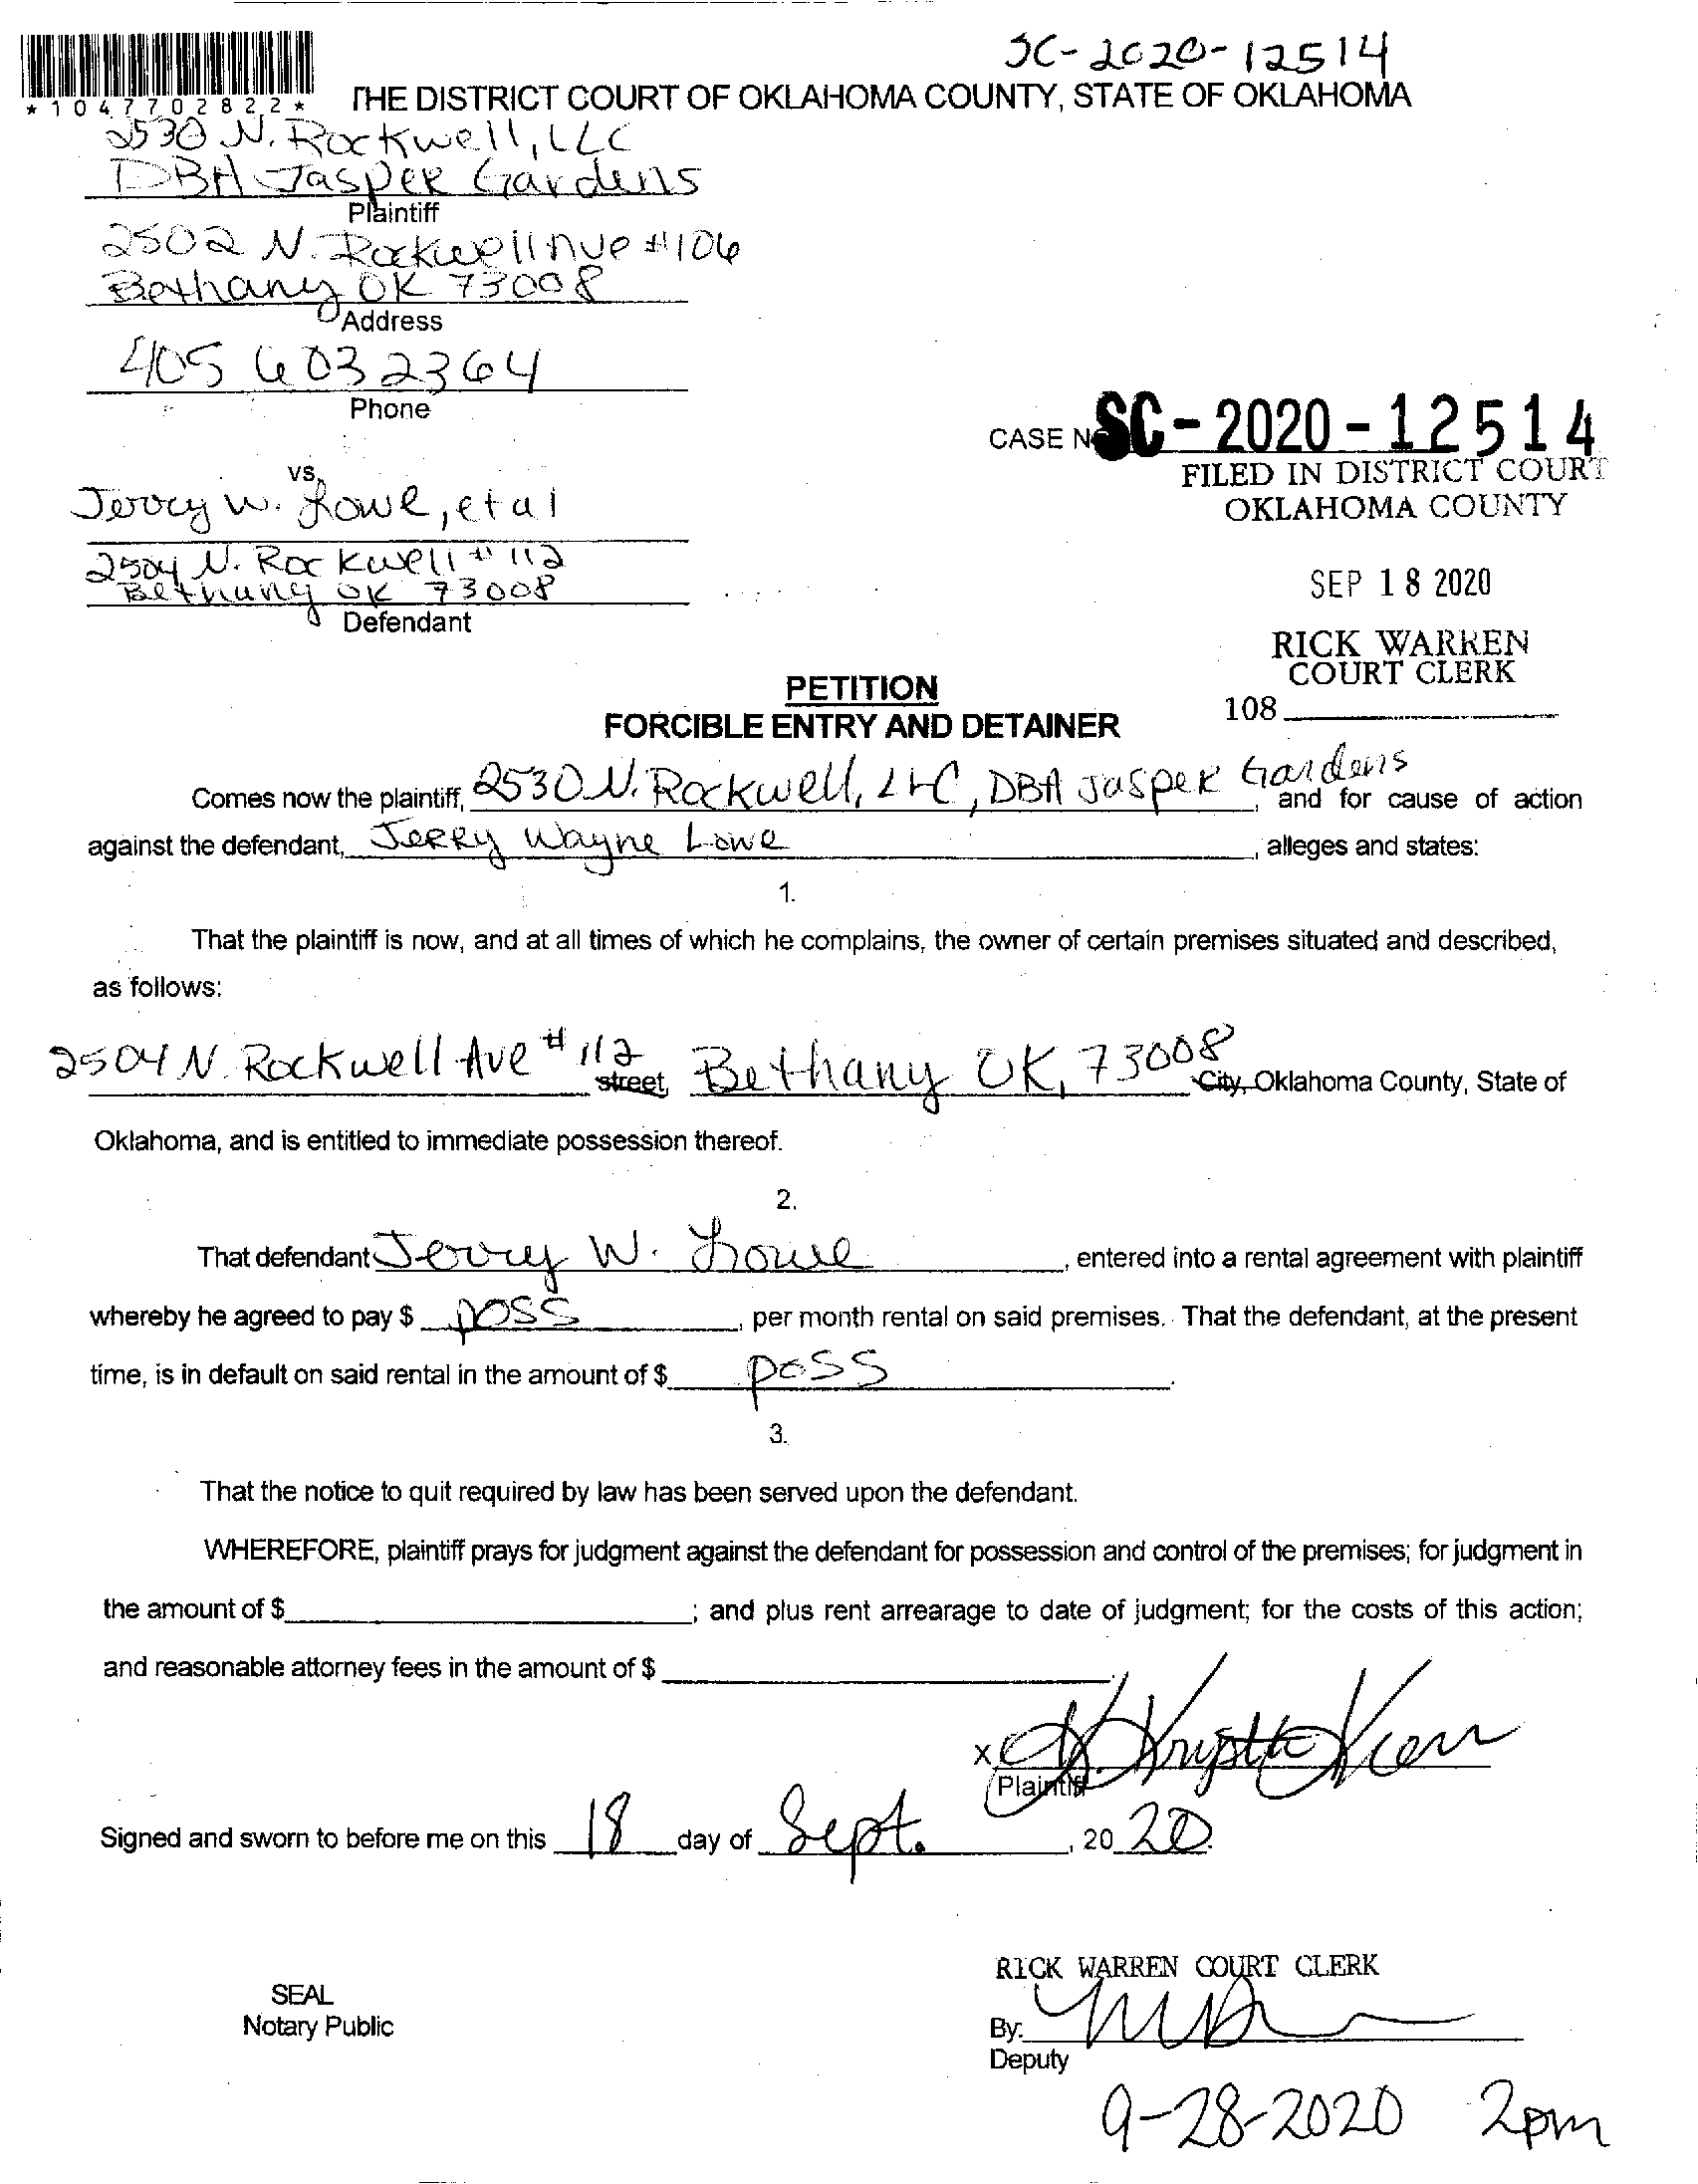 SC-2020-12514
*1047702822*
THE DISTRICT COURT OF OKLAHOMA COUNTY, STATE OF OKLAHOMA
2530 N. Rockwell, LLC
DBA Jasper Gardens
Plaintiff
2502 N. Rockwell Ave #106
Bethany OK 73008
Address
405 603 2364
Phone
CASE NO SC-2020-12514
FILED IN DISTRICT COURT
OKLAHOMA COUNTY
vs.
Jerry W. Lowe, et al
2504 N. Rockwell # 112
Bethany OK 73008
Defendant
SEP 18 2020
RICK WARREN
COURT CLERK
108
PETITION
FORCIBLE ENTRY AND DETAINER
Comes now the plaintiff, 2530 N. Rockwell, LLC, DBA Jasper Gardens, and for cause of action
against the defendant, Jerry Wayne Lowe, alleges and states:
1.
That the plaintiff is now, and at all times of which he complains, the owner of certain premises situated and described,
as follows:
2504 N. Rockwell Ave # 112 street, Bethany OK, 73008 City, Oklahoma County, State of
Oklahoma, and is entitled to immediate possession thereof.
2.
That defendant Jerry W. Lowe, entered into a rental agreement with plaintiff
whereby he agreed to pay $ poss, per month rental on said premises. That the defendant, at the present
time, is in default on said rental in the amount of $ poss.
3.
That the notice to quit required by law has been served upon the defendant.
WHEREFORE, plaintiff prays for judgment against the defendant for possession and control of the premises; for judgment in
the amount of $; and plus rent arrearage to date of judgment; for the costs of this action;
and reasonable attorney fees in the amount of $.
x
Plaintiff
Signed and sworn to before me on this 18 day of Sept., 2020.
RICK WARREN COURT CLERK
SEAL
Notary Public
By:
Deputy
9-28-2020 2pm